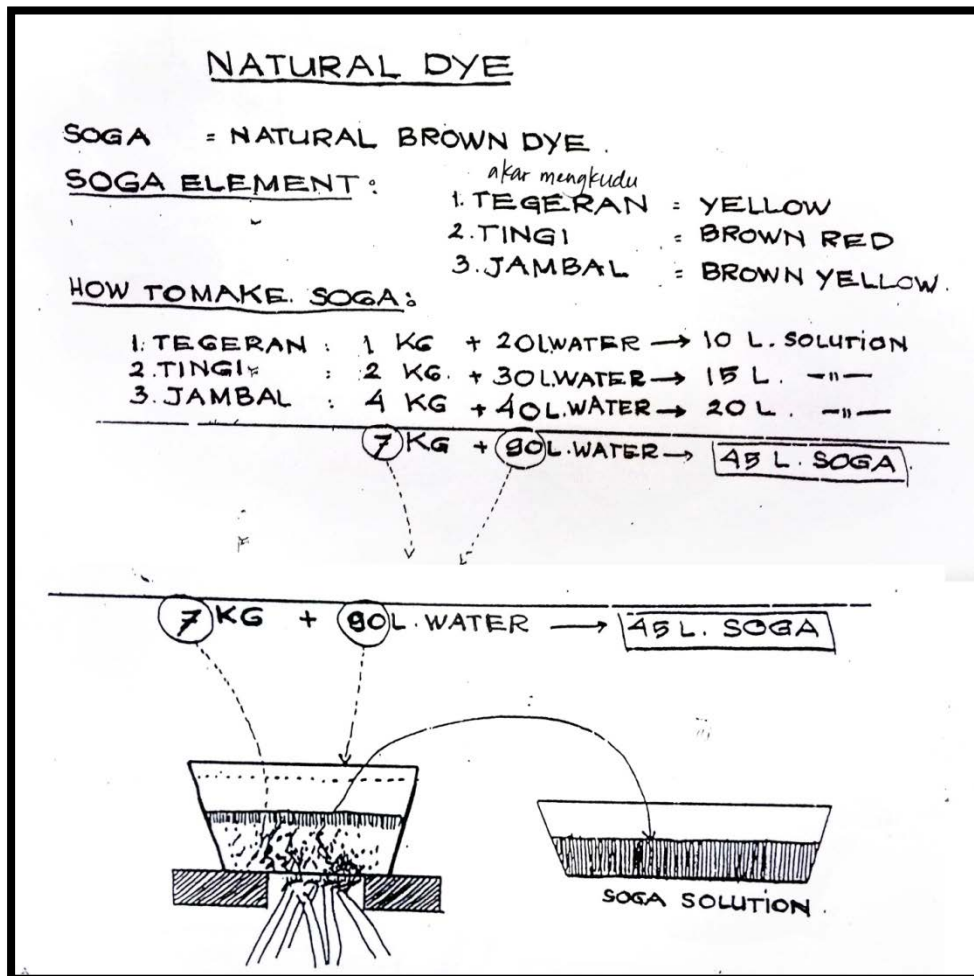 NATURAL DYE
SOGA = NATURAL BROWN DYE.
SOGA ELEMENT:
akar mengkudu
1. TEGERAN = YELLOW
2. TINGI = BROWN RED
3. JAMBAL = BROWN YELLOW.
HOW TOMAKE. SOGA:
1. TEGERAN : 1 KG + 20L.WATER → 10 L. SOLUTION
2. TINGI : 2 KG. + 30L.WATER → 15 L. -"-
3. JAMBAL : 4 KG + 40L.WATER → 20 L. -"-
7 KG + 90L.WATER → 45 L. SOGA
7 KG + 90L.WATER → 45 L. SOGA
SOGA SOLUTION.